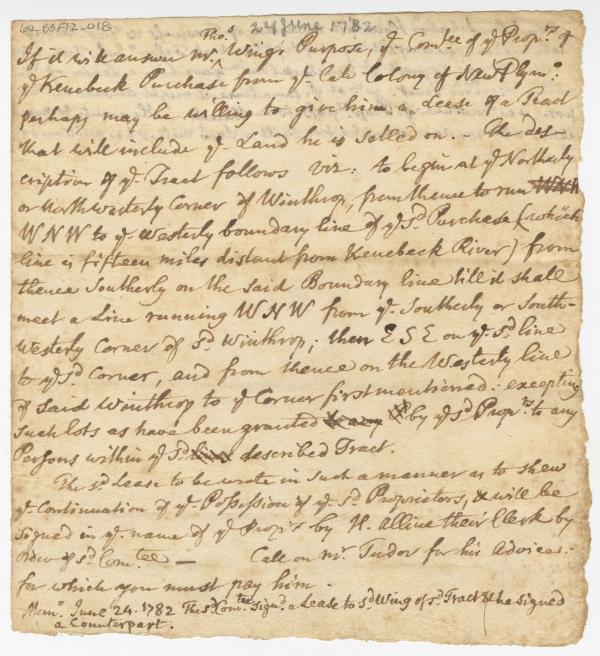 60-BBF12-018
24 June 1782
If it will answer mr. Thos. Wing's Purpose, ye Comtee of ye Proprs of
ye Kenebeck Purchase from ye late Colony of New Plymo:
perhaps may be willing to give him a Lease of a Tract
that will include ye Land he is settled on. — The des-
cription of ye Tract follows viz: to begin at ye Northerly
or Northwesterly Corner of Winthrop, from thence to run WNW
WNW to ye Westerly boundary line of ye sd Purchase (which
line is fifteen miles distant from Kenebeck River) from
thence Southerly on the said Boundary line till it shall
meet a Line running WNW from ye Southerly or South-
westerly Corner of sd Winthrop; then ESE on ye sd line
to ye sd Corner, and from thence on the Westerly line
of said Winthrop to ye Corner first mentioned: excepting
such lots as have been granted to any by ye sd Proprs to any
Persons within ye sd lines described Tract.
The sd Lease to be wrote in such a manner as to shew
ye Continuation of ye Possession of ye sd Proprietors, & will be
signed in ye name of ye Proprs by H. Alline their Clerk by
order of sd Comtee — Call on mr. Tudor for his Advice:
for which you must pay him.
Memo. June 24. 1782 The sd Comtee signd a Lease to sd Wing of sd Tract & he signed
a Counterpart.